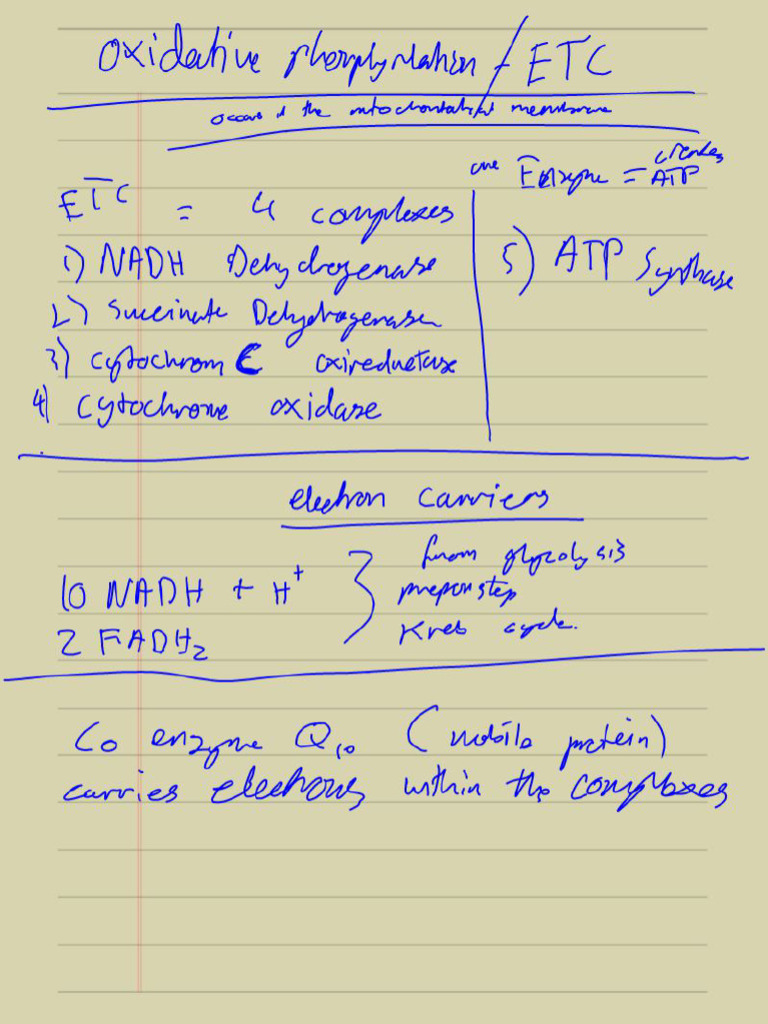 Oxidative phosphorylation / ETC
occurs in the mitochondrial membrane
ETC = 4 complexes
1) NADH Dehydrogenase
2) Succinate Dehydrogenase
3) cytochrom C oxireductase
4) cytochrome oxidase
one Enzyme = creates ATP
5) ATP Synthase
electron carriers
10 NADH + H⁺
2 FADH₂
from glycolysis
prepon step
Kreb cycle.
Co enzyme Q₁₀ (mobile protein)
carries electrons within the complexes